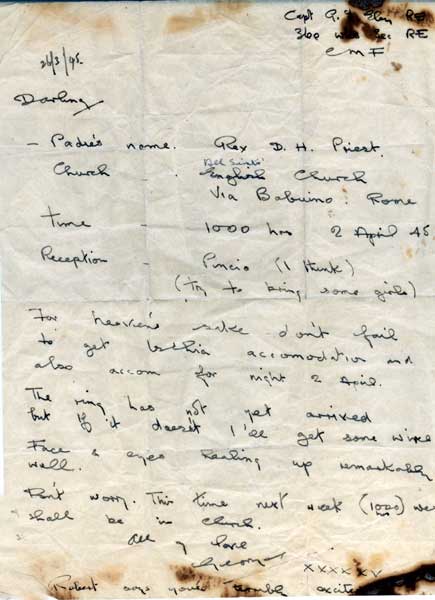 Capt
360 RE
CMF
26/3/45.
Darling
- Padre's name. Rex D. H. Priest.
All Saints'
Church - English Church
Via Babuino. Rome
Time - 1000 hrs 2 April 45
Reception - Pincio (I think)
(Try to bring some girls)
For heaven's sake don't fail
to get accomodation and
also accom for night 2 April.
The ring has not yet arrived
but if it doesn't I'll get some wire
Face & eyes healing up remarkably
well.
Don't worry. This time next week (1000) we
shall be in church.
All my love
George
xxxxxx
Robert says you're terribly excited